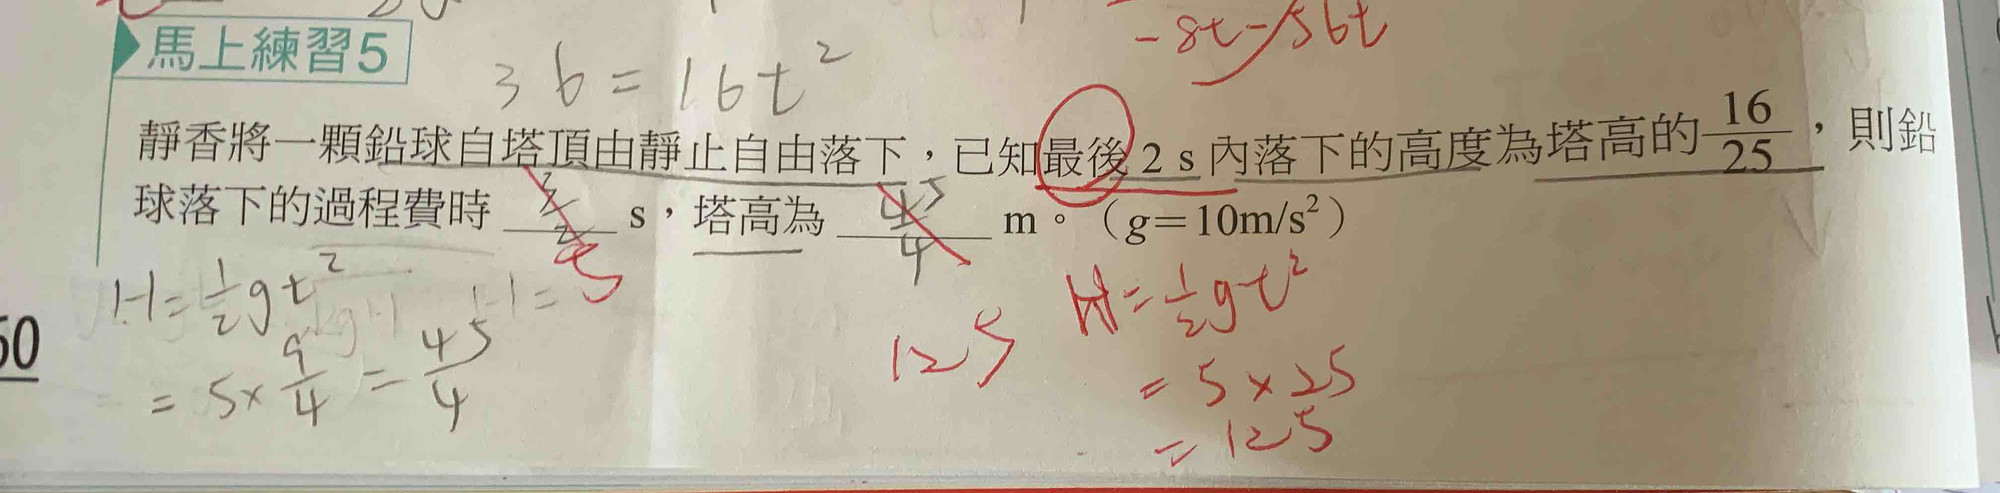 -8t-56t
馬上練習5
36=16t²
靜香將一顆鉛球自塔頂由靜止自由落下，已知最後 2 s 內落下的高度為塔高的16/25，則鉛
球落下的過程費時 3/2 s，塔高為 45/4 m。（g=10m/s²）
5
125
H=1/2gt²
=5×9/4=45/4
H=
H=1/2gt²
=5×25
=125
50